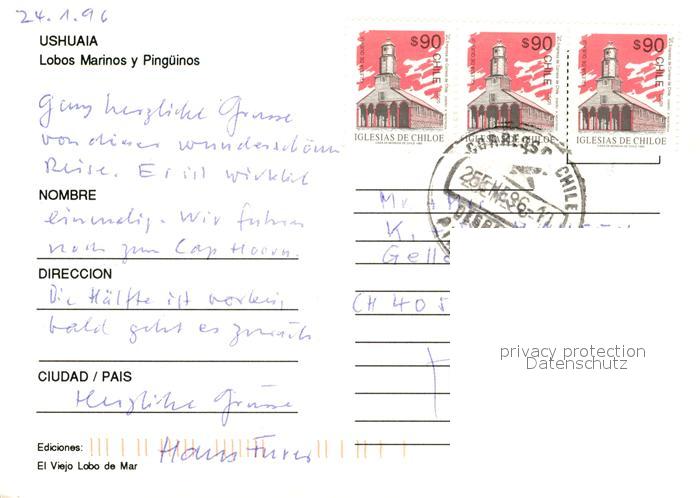 24.1.96
USHUAIA
Lobos Marinos y Pingüinos
Ganz herzliche Grüsse
von dieser wunderschönen
Reise. Es ist wirklich
NOMBRE
einmalig. Wir fuhren
noch zum Cap Hoorn.
DIRECCION
Die Hälfte ist vorbei,
bald geht es zurück
CIUDAD / PAIS
Herzliche Grüsse
Hans
Ediciones:
El Viejo Lobo de Mar
$90 CHILE
IGLESIAS DE CHILOE
$90 CHILE
IGLESIAS DE CHILOE
$90 CHILE
IGLESIAS DE CHILOE
CORREOS CHILE
25 ENE 96
K.
CH 405
privacy protection
Datenschutz